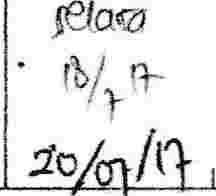 selara
18/7 17
20/07/17